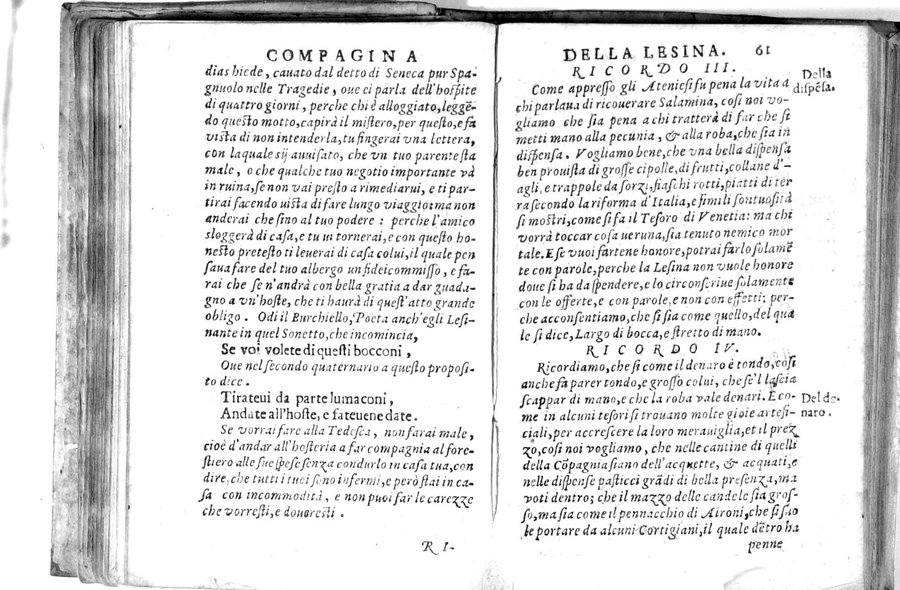 COMPAGINA
dias hiede, cauato dal detto di Seneca pur Spa-
gnuolo nelle Tragedie, oue ci parla dell'hospite
di quattro giorni, perche chi è alloggiato, leggẽ-
do questo motto, capirà il mistero, per questo, e fa
vista di non intenderla, tu fingerai vna lettera,
con laquale sij auuisato, che vn tuo parente sta
male, o che qualche tuo negotio importante và
in ruina, se non vai presto a rimediarui, e ti par-
tirai facendo uista di fare lungo viaggio: ma non
anderai che sino al tuo podere : perche l'amico
sloggerà di casa, e tu ui tornerai, e con questo ho-
nesto pretesto ti leuerai di casa colui, il quale pen
saua fare del tuo albergo un fideicommisso, e fa-
rai che se n'andrà con bella gratia a dar guada-
gno a vn'hoste, che ti haurà di quest'atto grande
obligo. Odi il Burchiello, Poeta anch'egli Lesi-
nante in quel Sonetto, che incomincia,
Se voi volete di questi bocconi,
Oue nel secondo quaternario a questo proposi-
to dice.
Tirateui da parte lumaconi,
Andate all'hoste, e fateuene date.
Se vorrai fare alla Tedesca, non farai male,
cioè d'andar all'hosteria a far compagnia al fore-
stiero alle sue spese senza condurlo in casa tua, con
dire, che tutti i tuoi sono infermi, e però stai in ca-
sa con incommodità, e non puoi far le carezze
che vorresti, e douresti.
R I-
DELLA LESINA. 61
RICORDO III.
Della
dispẽsa.
Come appresso gli Ateniesi fu pena la vita a
chi parlaua di ricouerare Salamina, così noi vo-
gliamo che sia pena a chi tratterà di far che si
metti mano alla pecunia, & alla roba, che sia in
dispensa. Vogliamo bene, che vna bella dispensa
ben prouista di grosse cipolle, di frutti, collane d'-
agli, e trappole da sorzi, fiaschi rotti, piatti di ter
ra secondo la riforma d'Italia, e simili sontuosità
si mostri, come si fa il Tesoro di Venetia: ma chi
vorrà toccar cosa ueruna, sia tenuto nemico mor
tale. E se vuoi fartene honore, potrai farlo solamẽ
te con parole, perche la Lesina non vuole honore
doue si ha da spendere, e lo circonscriue solamente
con le offerte, e con parole, e non con effetti: per-
che acconsentiamo, che si sia come quello, del qua
le si dice, Largo di bocca, e stretto di mano.
RICORDO IV.
Ricordiamo, che si come il denaro è tondo, così
anche fa parer tondo, e grosso colui, che se'l lascia
scappar di mano, e che la roba vale denari. E co-
Del de-
naro.
me in alcuni tesori si trouano molte gioie artefi-
ciali, per accrescere la loro merauiglia, et il prez
zo, così noi vogliamo, che nelle cantine di quelli
della Cõpagnia siano dell'acquette, & acquati, e
nelle dispense pasticci grãdi di bella presenza, ma
voti dentro; che il mazzo delle candele sia gros-
so, ma sia come il pennacchio di Aironi, che si suo
le portare da alcuni Cortigiani, il quale dẽtro ha
penne